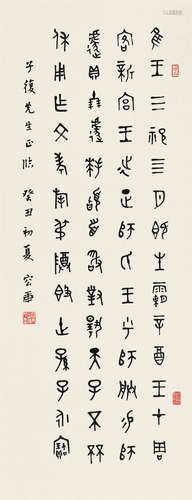 隹王三祀四月既生霸辛酉王才周
客新宮王㢟正師氏王乎師朕易師
遽貝十朋遽拜𩒨首敢對揚天子不㔻
休用乍文考旄弔𨺅𣪘世孫子永寶
子復先生正臨 癸丑初夏